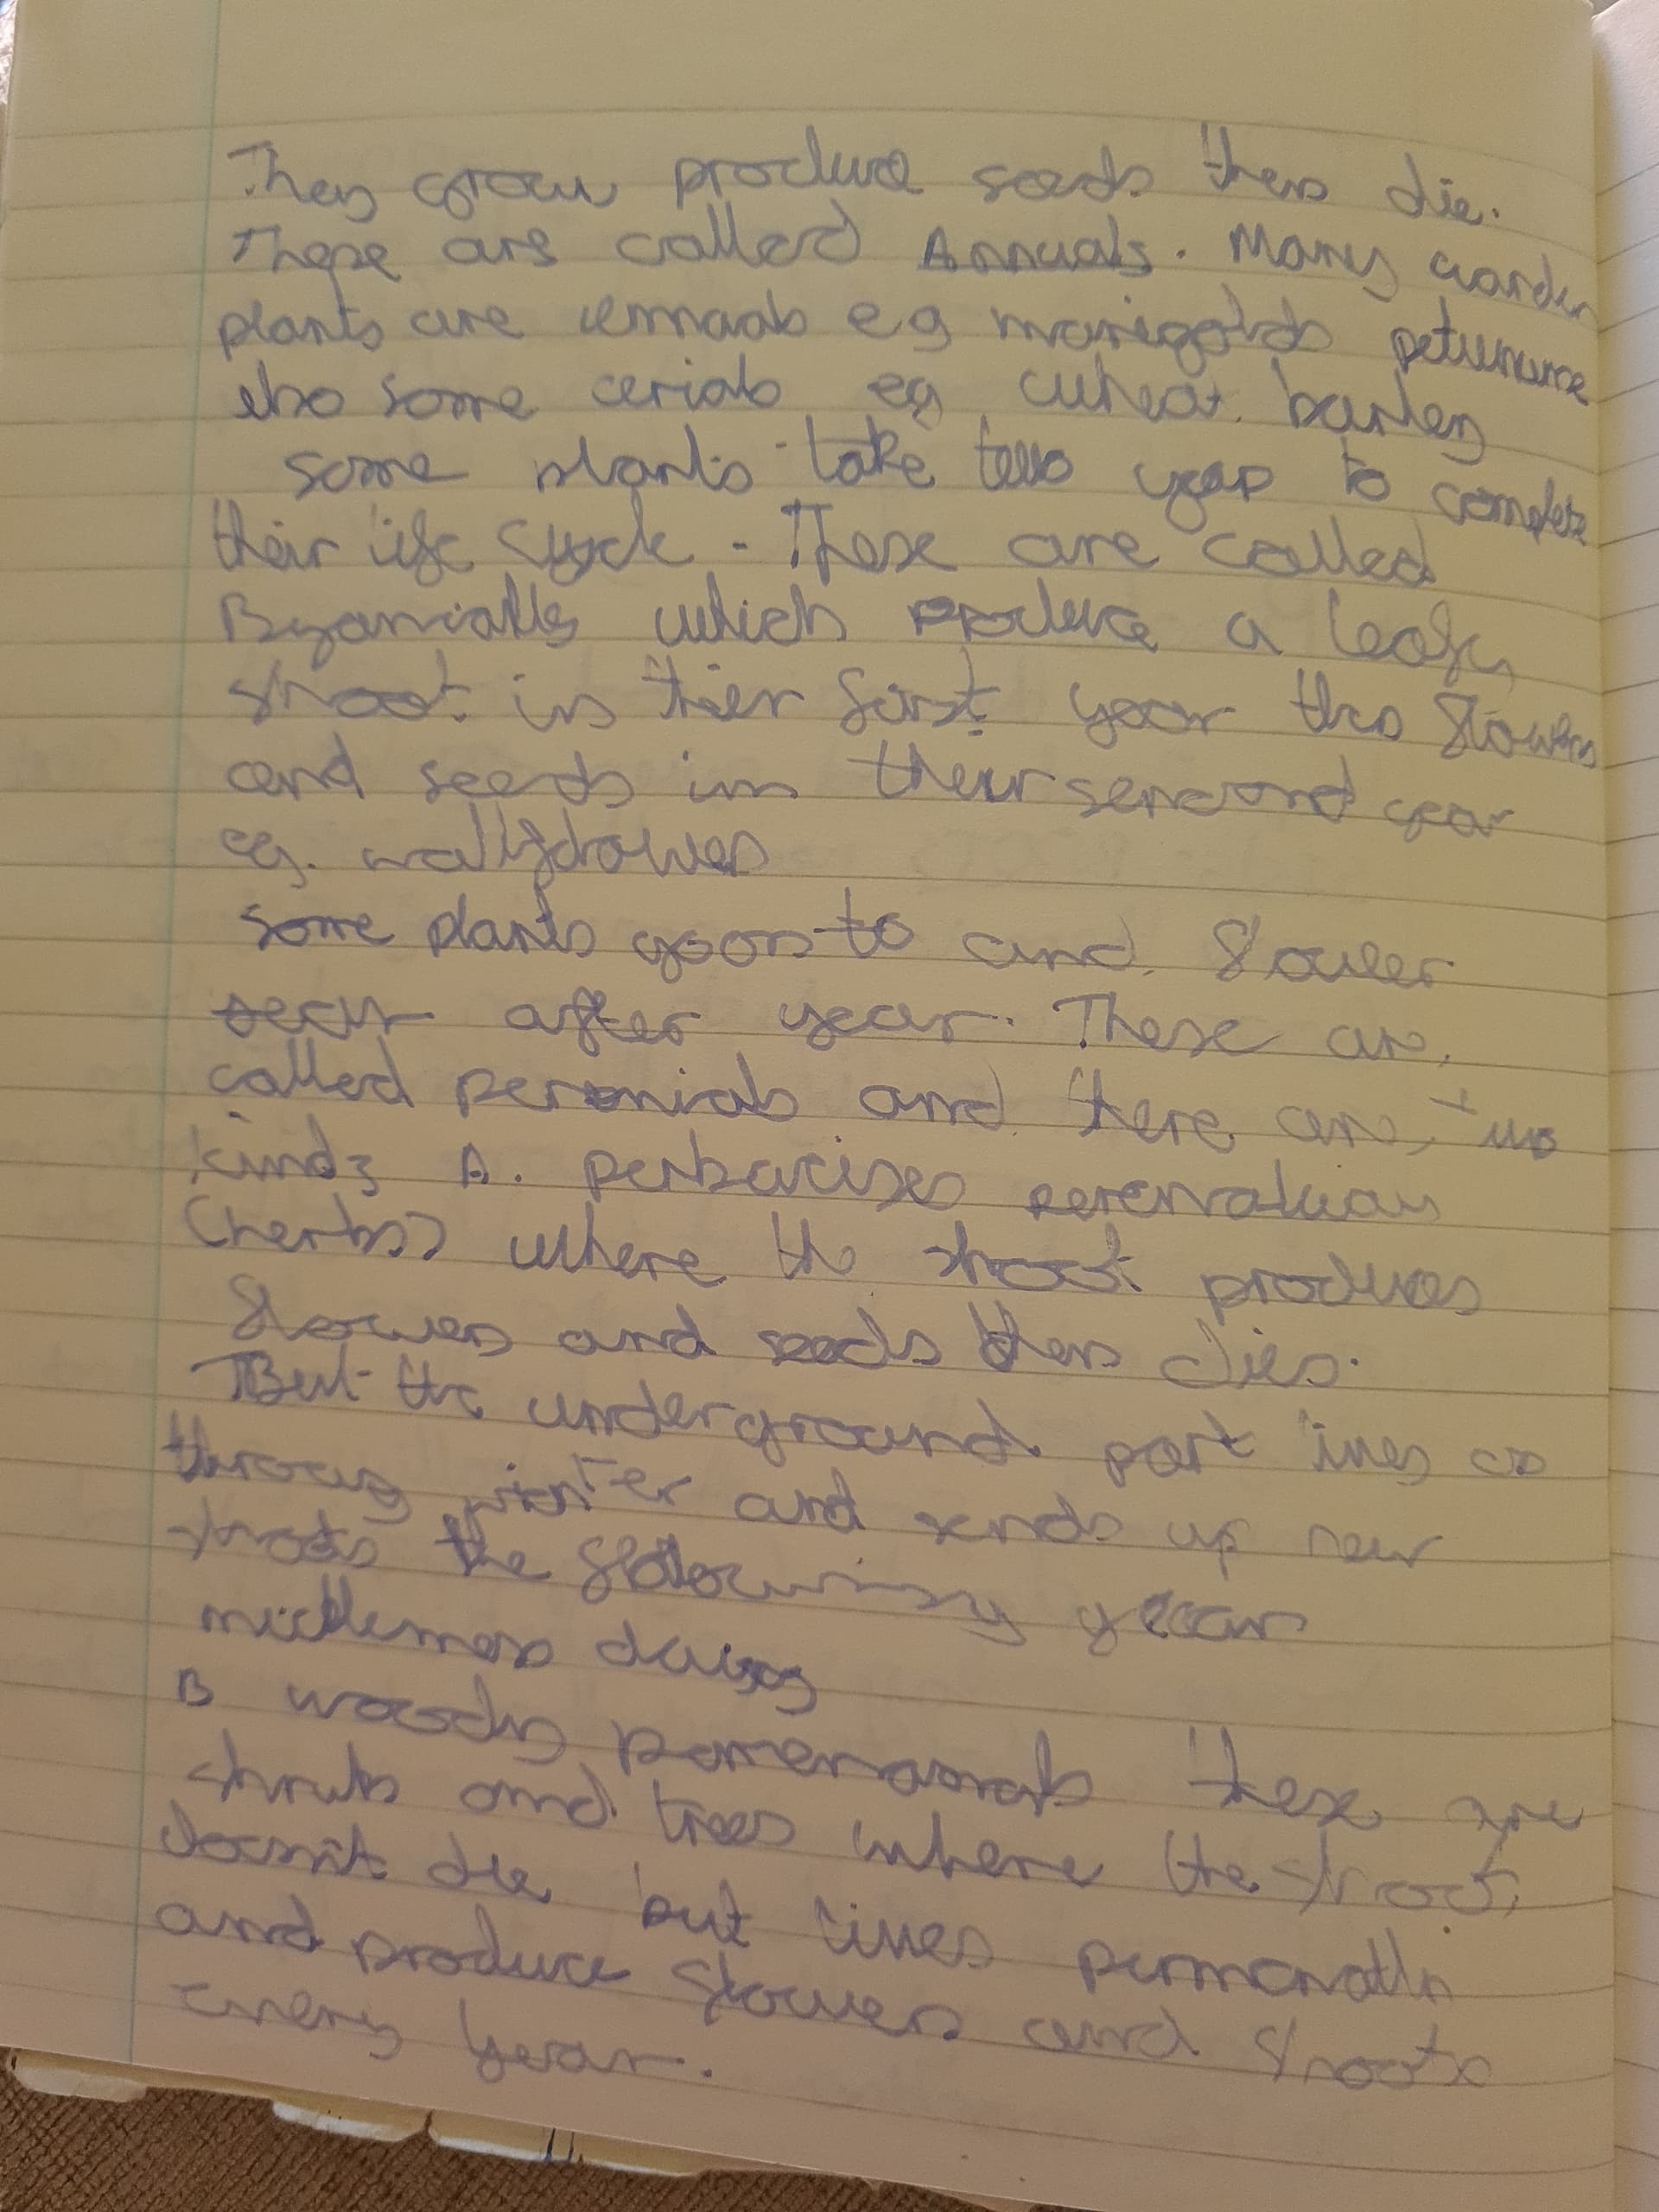 They grow produce seeds then die.
These are called Annuals. Many garden
plants are eg marigolds
also some cerials eg wheat. barley
some plants take two years to complete
their life cycle - These are called
which produce a leafy
shoot in their first year then flowers
and seeds in their second year
eg. wallflowers
some plants to and flower
year after year. These are
called perenials and there are two
kinds A.
(herbs) where the shoot produces
flowers and seeds then dies.
But the underground part lives on
through winter and sends up new
shoots the following year
daisy
B woody these are
shrubs and trees where the shoot
doesn't die but lives
and produce flowers and shoots
every year.